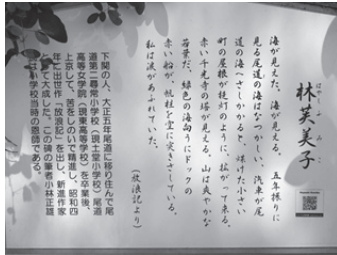 はやしふみこ
林芙美子
海が見えた、海が見える。五年振りに
見る尾道の海はなつかしい、汽車が尾
道の海へさしかかると、煤けた小さい
町の屋根が提灯のように、拡がって来る。
赤い千光寺の塔が見える。山は爽やかな
若葉だ。緑色の海向うにドックの
赤い船が、帆柱を空に突きさしている。
私は涙があふれていた。
(放浪記より)
下関の人、大正五年尾道に移り住んで尾
道第二尋常小学校(現土堂小学校)尾道
高等女学院(現東高等学校)を卒業後、
上京して、苦をしのいで精進し、昭和四
年に出世作「放浪記」を出し、新進作家
として大成した。この碑の筆者小林正雄
は小学校当時の恩師である。